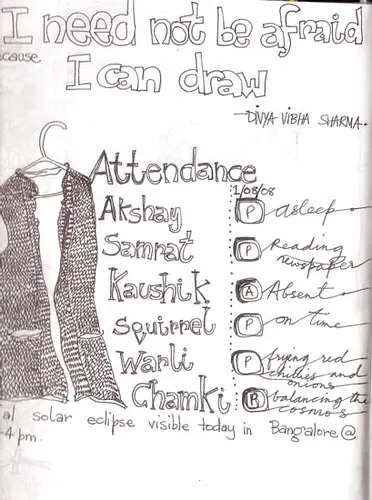 I need not be afraid
cause
I can draw
-DIVYA VIBHA SHARMA.
Attendance
1/08/08
Akshay P asleep
Samrat P Reading newspaper
Kaushik A Absent
Squirrel P on time
Warli P frying red chillies and onions
Chamki R balancing the cosmos
al solar eclipse visible today in Bangalore @
4 pm.